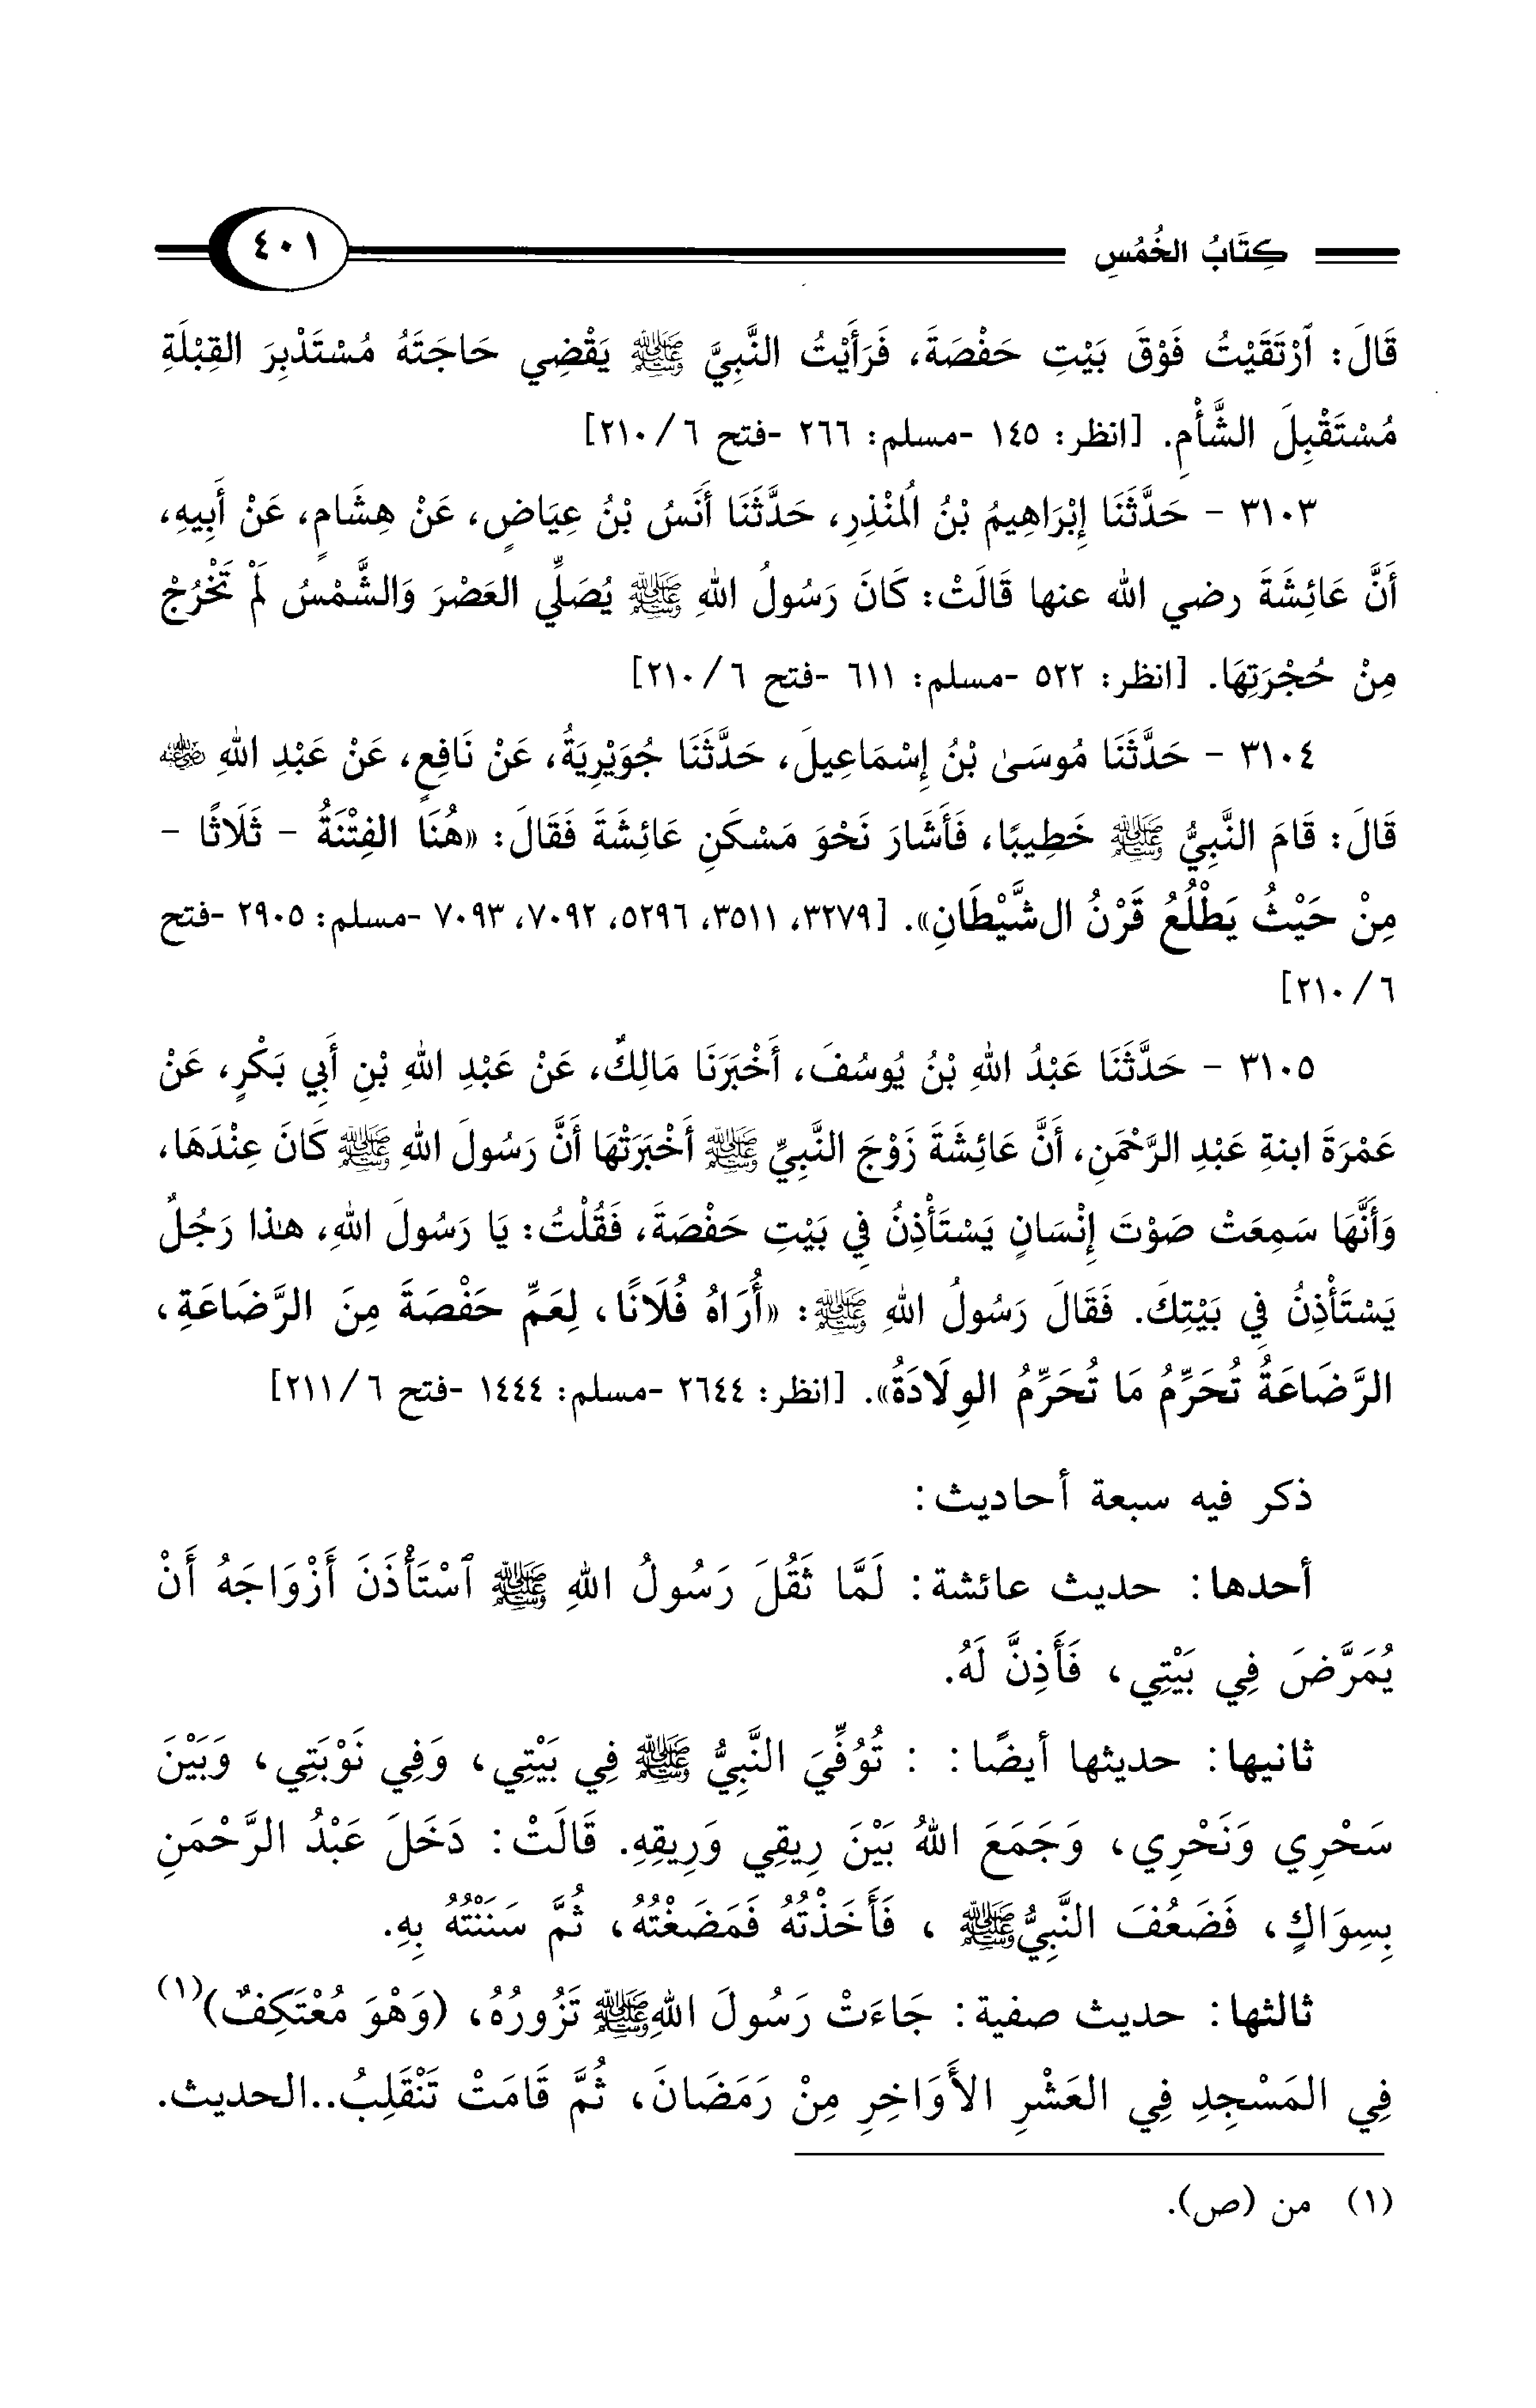 كِتَابُ الخُمُسِ ٤٠١
قَالَ: ٱرْتَقَيْتُ فَوْقَ بَيْتِ حَفْصَةَ، فَرَأَيْتُ النَّبِيَّ ﷺ يَقْضِي حَاجَتَهُ مُسْتَدْبِرَ القِبْلَةِ
مُسْتَقْبِلَ الشَّأْمِ. [انظر: ١٤٥ -مسلم: ٢٦٦ -فتح ٦/ ٢١٠]
٣١٠٣ - حَدَّثَنَا إِبْرَاهِيمُ بْنُ الُمنْذِرِ، حَدَّثَنَا أَنَسُ بْنُ عِيَاضٍ، عَنْ هِشَامٍ، عَنْ أَبِيهِ،
أَنَّ عَائِشَةَ رضي الله عنها قَالَتْ: كَانَ رَسُولُ اللهِ ﷺ يُصَلِّي العَصْرَ وَالشَّمْسُ لَمْ تَخْرُجْ
مِنْ حُجْرَتِهَا. [انظر: ٥٢٢ -مسلم: ٦١١ -فتح ٦/ ٢١٠]
٣١٠٤ - حَدَّثَنَا مُوسَىٰ بْنُ إِسْمَاعِيلَ، حَدَّثَنَا جُوَيْرِيَةُ، عَنْ نَافِعٍ، عَنْ عَبْدِ اللهِ رضي الله عنه
قَالَ: قَامَ النَّبِيُّ ﷺ خَطِيبًا، فَأَشَارَ نَحْوَ مَسْكَنِ عَائِشَةَ فَقَالَ: «هُنَا الفِتْنَةُ - ثَلَاثًا -
مِنْ حَيْثُ يَطْلُعُ قَرْنُ ال شَّيْطَانِ». [٣٢٧٩، ٣٥١١، ٥٢٩٦، ٧٠٩٢، ٧٠٩٣ -مسلم: ٢٩٠٥ -فتح
٦/ ٢١٠]
٣١٠٥ - حَدَّثَنَا عَبْدُ اللهِ بْنُ يُوسُفَ، أَخْبَرَنَا مَالِكٌ، عَنْ عَبْدِ اللهِ بْنِ أَبِي بَكْرٍ، عَنْ
عَمْرَةَ ابنةِ عَبْدِ الرَّحْمَنِ، أَنَّ عَائِشَةَ زَوْجَ النَّبِيِّ ﷺ أَخْبَرَتْهَا أَنَّ رَسُولَ اللهِ ﷺ كَانَ عِنْدَهَا،
وَأَنَّهَا سَمِعَتْ صَوْتَ إِنْسَانٍ يَسْتَأْذِنُ فِي بَيْتِ حَفْصَةَ، فَقُلْتُ: يَا رَسُولَ اللهِ، هٰذا رَجُلٌ
يَسْتَأْذِنُ فِي بَيْتِكَ. فَقَالَ رَسُولُ اللهِ ﷺ: «أُرَاهُ فُلَانًا، لِعَمِّ حَفْصَةَ مِنَ الرَّضَاعَةِ،
الرَّضَاعَةُ تُحَرِّمُ مَا تُحَرِّمُ الوِلَادَةُ». [انظر: ٢٦٤٤ -مسلم: ١٤٤٤ -فتح ٦/ ٢١١]
ذكر فيه سبعة أحاديث:
أحدها: حديث عائشة: لَمَّا ثَقُلَ رَسُولُ اللهِ ﷺ ٱسْتَأْذَنَ أَزْوَاجَهُ أَنْ
يُمَرَّضَ فِي بَيْتِي، فَأَذِنَّ لَهُ.
ثانيها: حديثها أيضًا: : تُوُفِّيَ النَّبِيُّ ﷺ فِي بَيْتِي، وَفِي نَوْبَتِي، وَبَيْنَ
سَحْرِي وَنَحْرِي، وَجَمَعَ اللهُ بَيْنَ رِيقِي وَرِيقِهِ. قَالَتْ: دَخَلَ عَبْدُ الرَّحْمَنِ
بِسِوَاكٍ، فَضَعُفَ النَّبِيُّ ﷺ ، فَأَخَذْتُهُ فَمَضَغْتُهُ، ثُمَّ سَنَنْتُهُ بِهِ.
ثالثها: حديث صفية: جَاءَتْ رَسُولَ اللهِ ﷺ تَزُورُهُ، (وَهْوَ مُعْتَكِفٌ)(١)
فِي المَسْجِدِ فِي العَشْرِ الأَوَاخِرِ مِنْ رَمَضَانَ، ثُمَّ قَامَتْ تَنْقَلِبُ..الحديث.
(١) من (ص).